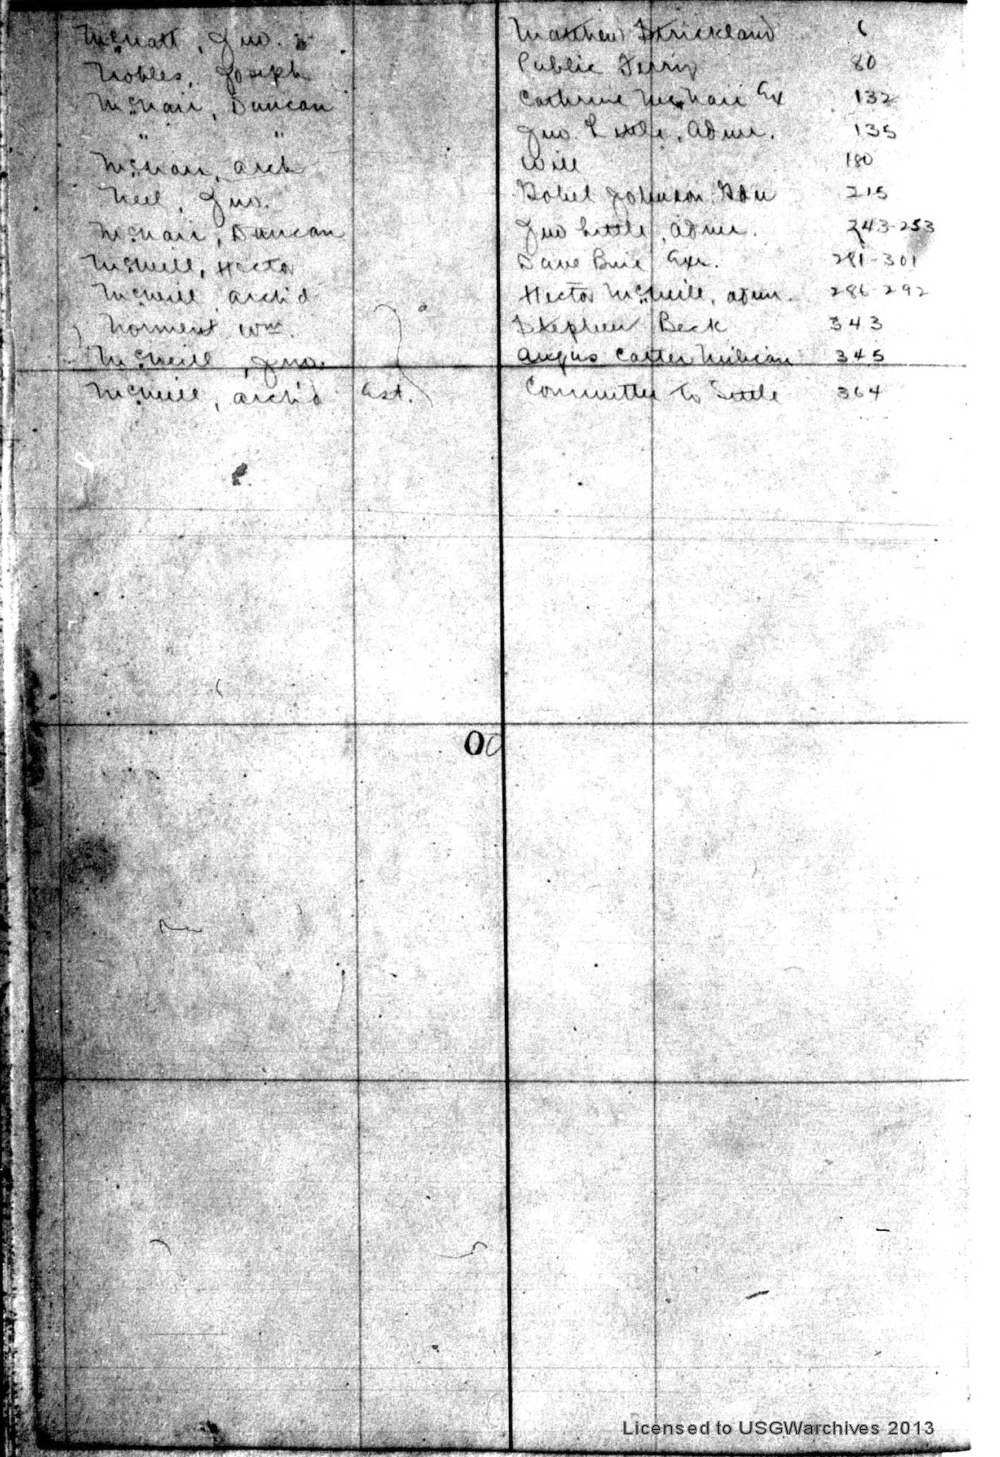 McNatt, Jno. Matthew Strickland 6
Nobles, Joseph Public Ferry 80
McNair, Duncan Cathrine McNair Ex 132
" " Jno. Little, Admr. 135
McNair, Arch Will 180
Neel, Jno. Johnson 215
McNair, Duncan Jno Little, admr. 243-253
McNeill, Hector Exr. 281-301
McNeill Arch'd Hector McNeill, admr. 286-292
Norment Wm. Stephen Beck 343
McNeill, Jno. Angus Carter 345
McNeill, Arch'd Est. Committee to Settle 364
O
Licensed to USGWarchives 2013